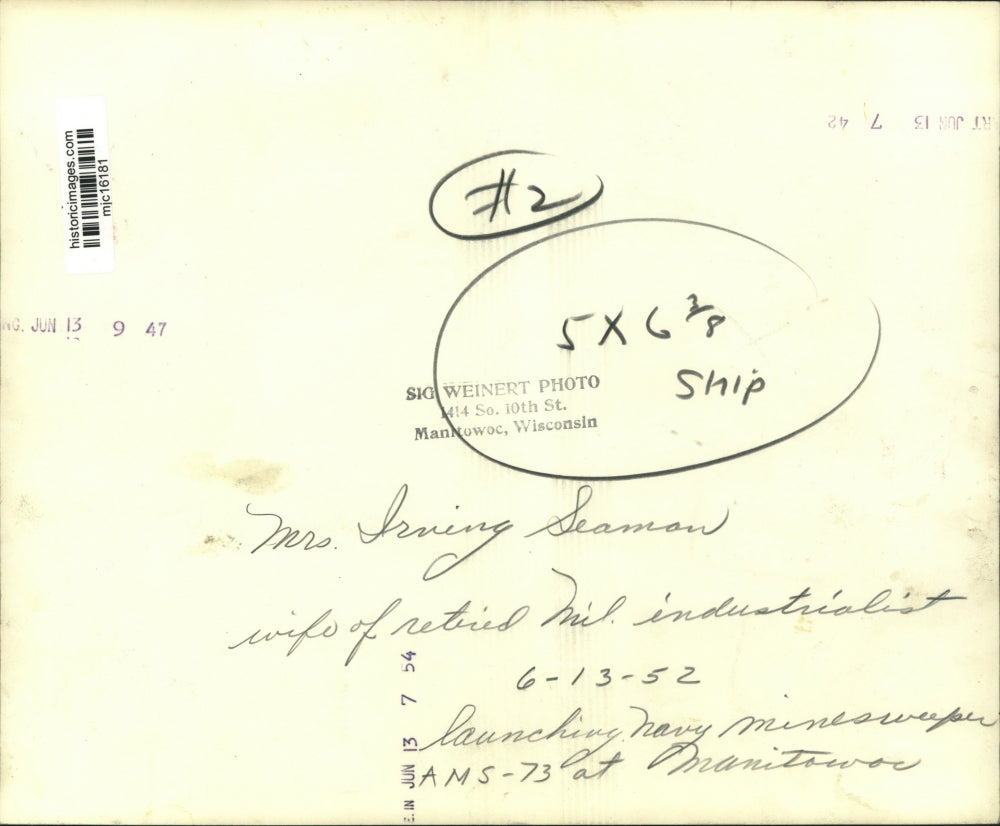 historicimages.com
mjc16181
RT JUN 13 7 42
#2
NG. JUN 13 9 47
5 X 6 3/8
Ship
SIG WEINERT PHOTO
1414 So. 10th St.
Manitowoc, Wisconsin
Mrs. Irving Seaman
wife of retired Mil. industrialist
6-13-52
launching Navy minesweeper
AMS-73 at Manitowoc
E. IN JUN 13 7 54